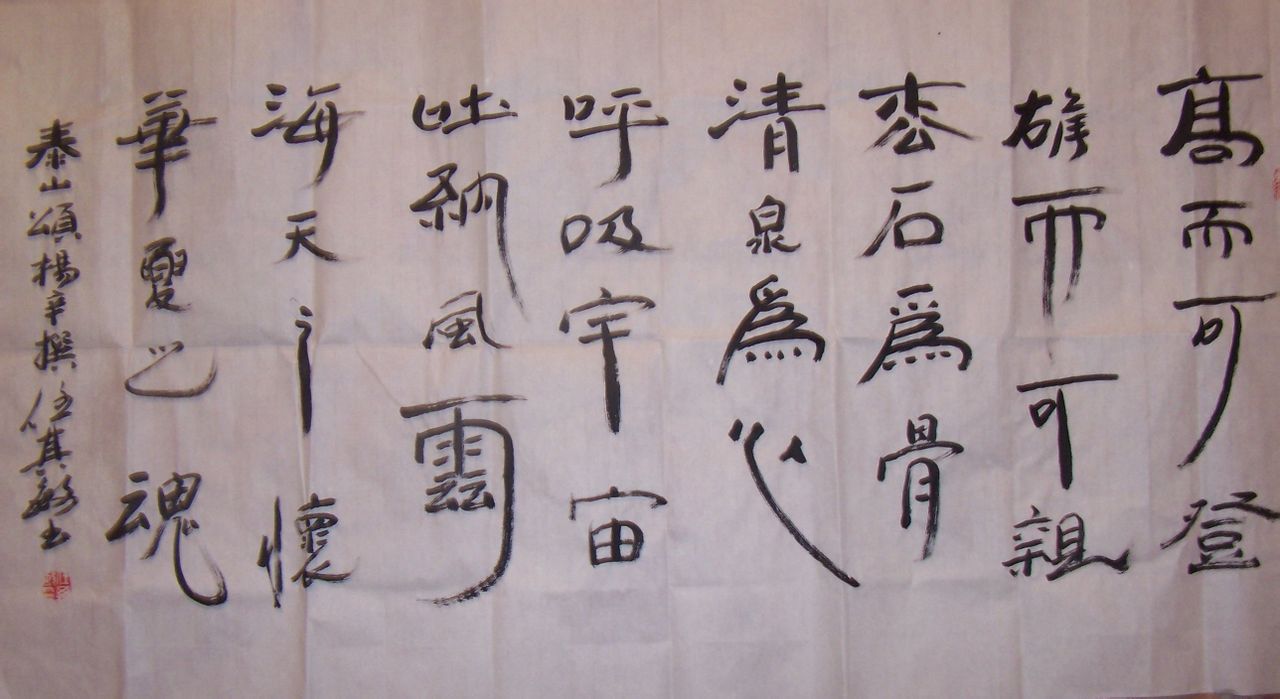 髙而可登
雄而可親
枩石爲骨
清泉爲心
呼吸宇宙
吐納風雲
海天之懷
華夏之魂
泰山頌楊辛撰任其敏书